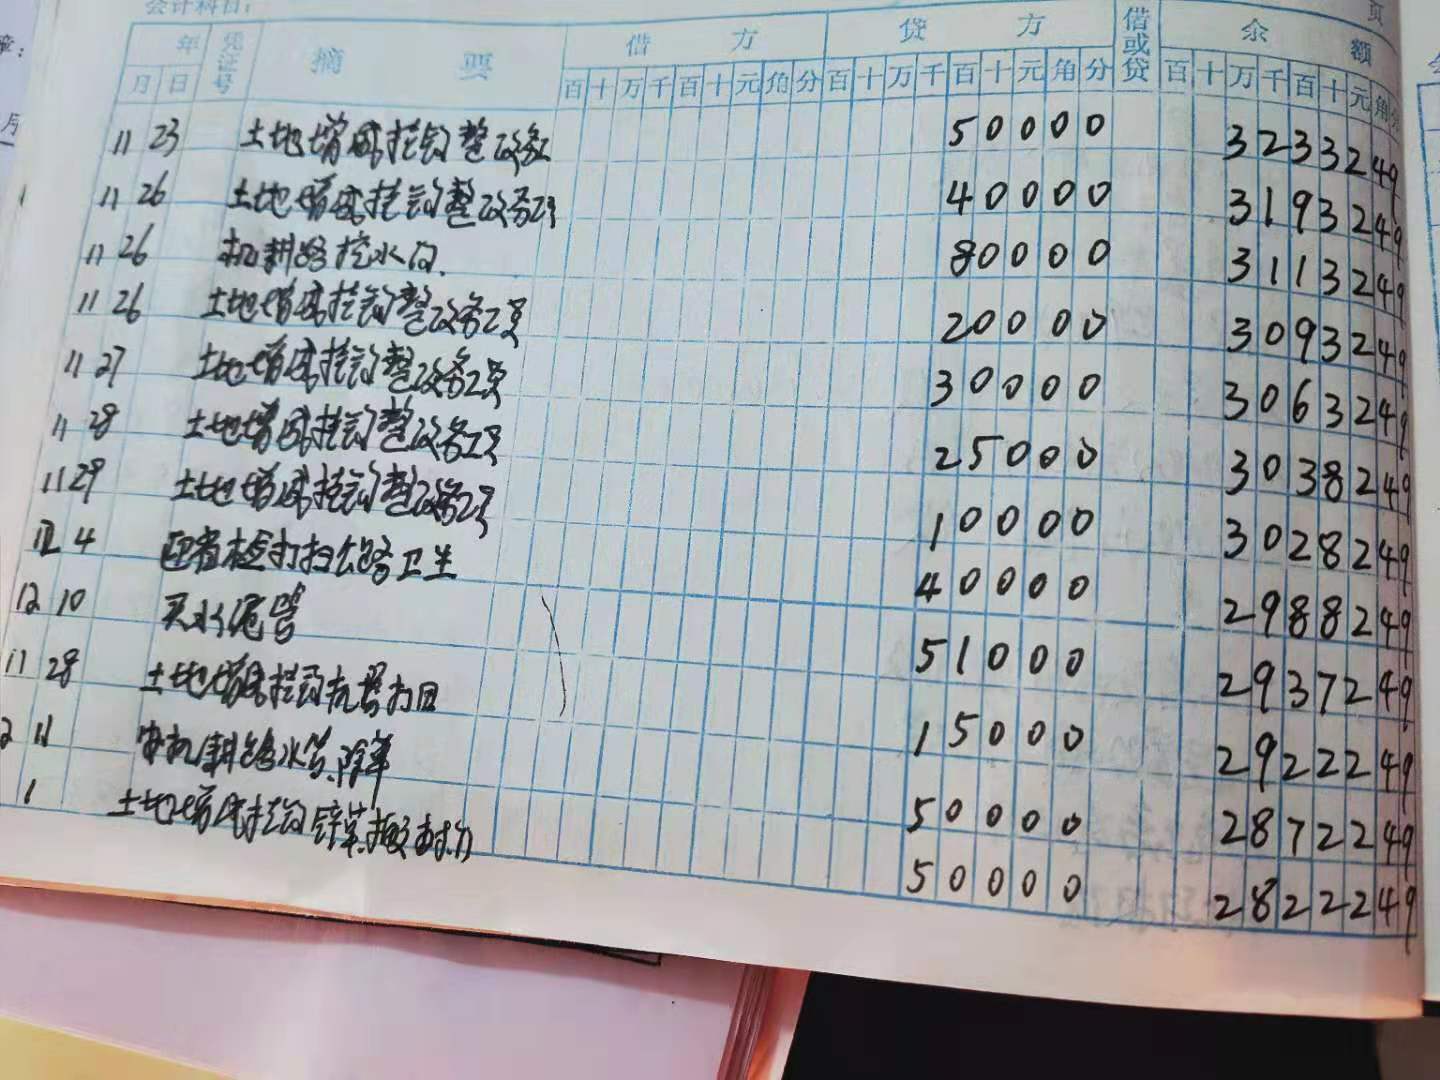 会计科目:
页
年 凭证号 摘 要 借 方 贷 方 借或贷 余 额
月 日 百 十 万 千 百 十 元 角 分 百 十 万 千 百 十 元 角 分 百 十 万 千 百 十 元 角 分
11 23 土地增减挂钩整改务工 50000 3233249
11 26 土地增减挂钩整改务工 40000 3193249
11 26 机耕路挖水沟 80000 3113249
11 26 土地增减挂钩整改务工费 20000 3093249
11 27 土地增减挂钩整改务工费 30000 3063249
11 28 土地增减挂钩整改务工 25000 3038249
11 29 土地增减挂钩整改务工 10000 3028249
12 4 迎省检打扫公路卫生 40000 2988249
12 10 买水 管 51000 2937249
11 28 土地增减挂钩 15000 2922249
2 11 机耕路水 除草 50000 2872249
1 土地增减挂钩锌草 50000 2822249